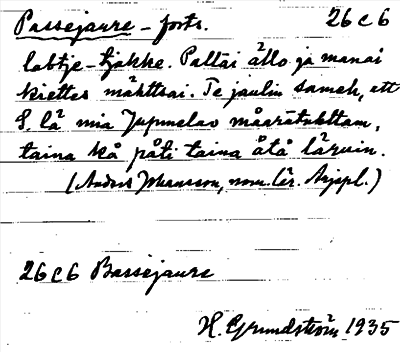 Passejaure - forts. 26 C 6
labtje-tjåkke. Paltai ållo ja manai
kiettes måhttsai. Te jaulin sameh, att
S. lä mia Jupmelav måarätuhttam,
taina kå påti taina åtå läruin.
(Anders Johansson, nom. lär. Arjepl.)
26 C 6 Bassejaure
H. Grundström 1935